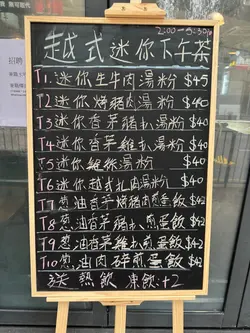 越式迷你下午茶
2:00-5:30pm
T1.迷你生牛肉湯粉 $45
T2 迷你燒豬肉湯粉 $40
T3 迷你香茅豬扒湯粉 $40
T4 迷你香茅雞扒湯粉 $40
T5 迷你 湯粉 $40
T6 迷你越式扎肉湯粉 $40
T7 葱油香芋燒豬肉煎蛋飯 $42
T8 葱油香茅豬扒煎蛋飯 $42
T9 葱油香茅雞扒煎蛋飯 $42
T10 葱油肉碎煎蛋飯 $42
送熱飲 凍飲+2
招聘